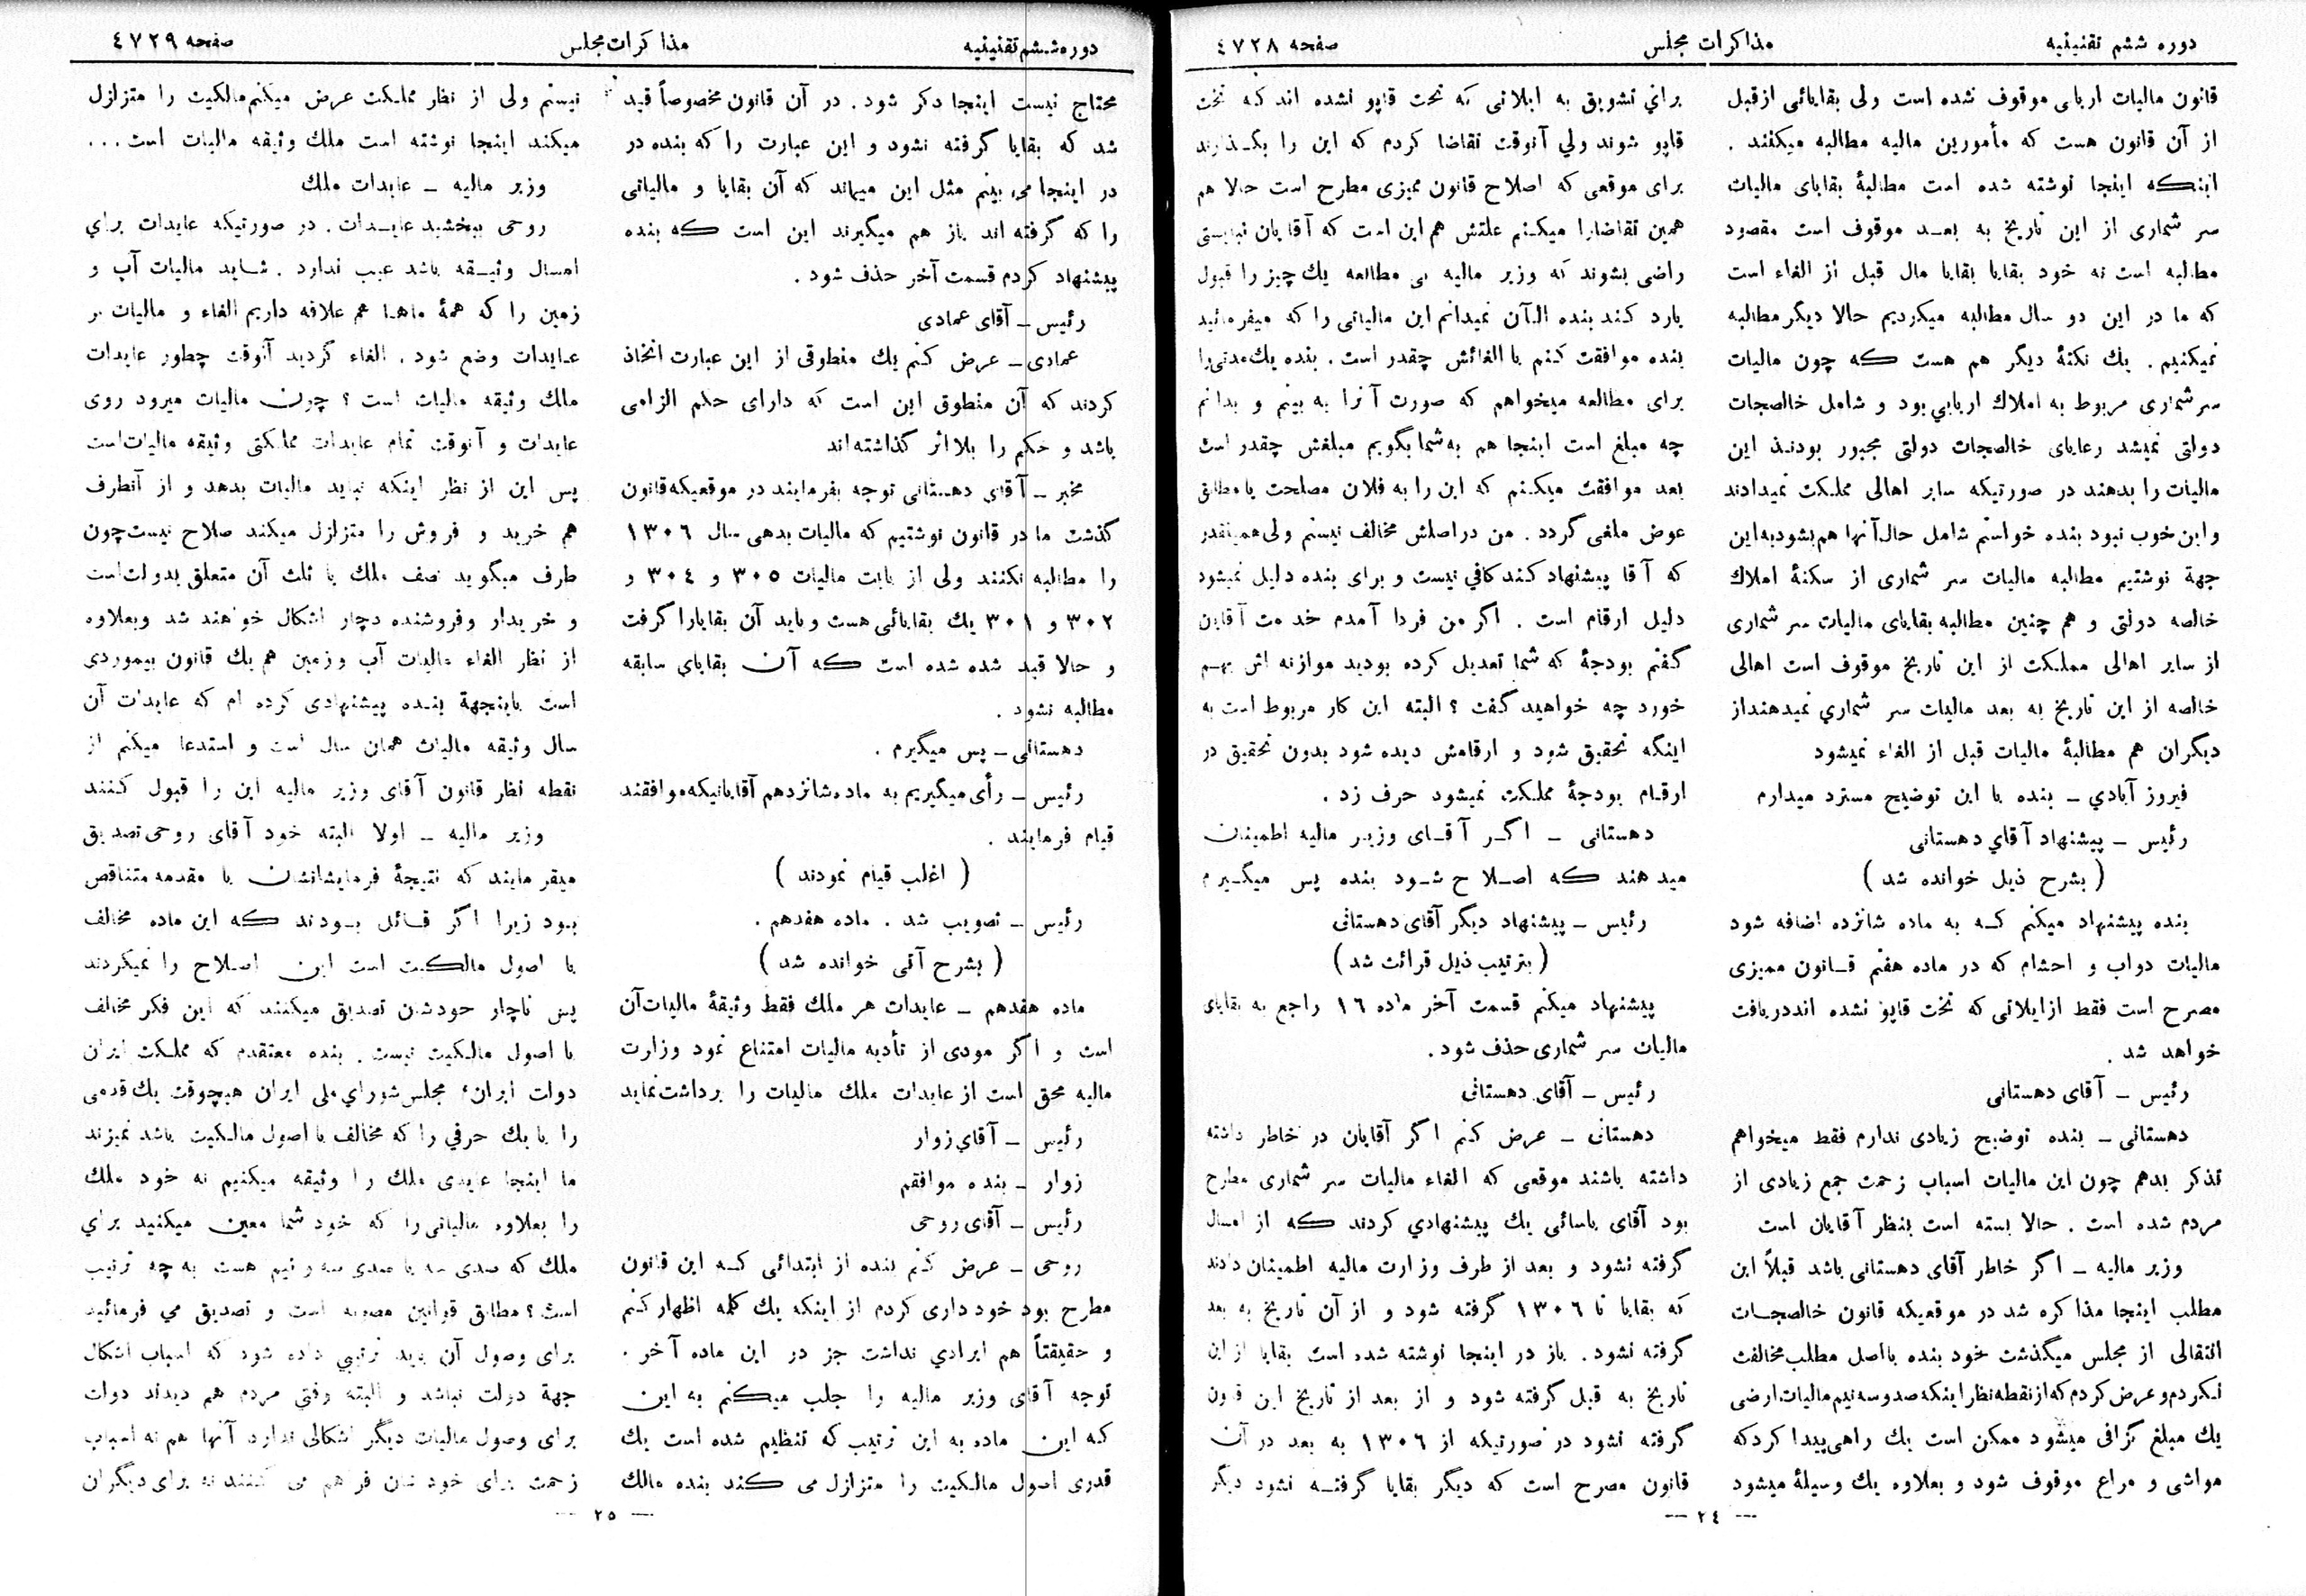 دوره ششم تقنینیه
مذاکرات مجلس
صفحه ٤٧٢٨
قانون مالیات اربابی موقوف نشده است ولی بقایائی از قبل
از آن قانون هست که مأمورین مالیه مطالبه میکنند .
اینکه اینجا نوشته شده است مطالبهٔ بقایای مالیات
سر شماری از این تاریخ به بعد موقوف است مقصود
مطالبه است نه خود بقایا بقایا مال قبل از الغاء است
که ما در این دو سال مطالبه میکردیم حالا دیگر مطالبه
نمیکنیم . یك نکتهٔ دیگر هم هست که چون مالیات
سرشماری مربوط به املاك اربابی بود و شامل خالصجات
دولتی نمیشد رعایای خالصجات دولتی مجبور بودند این
مالیات را بدهند در صورتیکه سایر اهالی مملکت نمیدادند
و این خوب نبود بنده خواستم شامل حال آنها هم بشود به این
جهة نوشتیم مطالبه مالیات سر شماری از سکنهٔ املاك
خالصه دولتی و هم چنین مطالبه بقایای مالیات سر شماری
از سایر اهالی مملکت از این تاریخ موقوف است اهالی
خالصه از این تاریخ به بعد مالیات سر شماری نمیدهند از
دیگران هم مطالبهٔ مالیات قبل از الغاء نمیشود
فیروز آبادی ــ بنده با این توضیح مسترد میدارم
رئیس ــ پیشنهاد آقای دهستانی
( بشرح ذیل خوانده شد )
بنده پیشنهاد میکنم که به ماده شانزده اضافه شود
مالیات دواب و احشام که در ماده هفتم قانون ممیزی
مصرح است فقط از ایلاتی که تخت قاپو نشده اند دریافت
خواهد شد .
رئیس ــ آقای دهستانی
دهستانی ــ بنده توضیح زیادی ندارم فقط میخواهم
تذکر بدهم چون این مالیات اسباب زحمت جمع زیادی از
مردم شده است . حالا بسته است بنظر آقایان است
وزیر مالیه ــ اگر خاطر آقای دهستانی باشد قبلاً این
مطلب اینجا مذاکره شد در موقعیکه قانون خالصجات
انتقالی از مجلس میگذشت خود بنده با اصل مطلب مخالفت
نکردم و عرض کردم که از نقطه نظر اینکه صد و سه نیم مالیات ارضی
یك مبلغ گزافی میشود ممکن است یك راهی پیدا کرد که
مواشی و مراع موقوف شود و بعلاوه یك وسیلهٔ میشود
برای تشویق به ایلاتی که تخت قاپو نشده اند که تخت
قاپو شوند ولی آنوقت تقاضا کردم که این را بگذارند
برای موقعی که اصلاح قانون ممیزی مطرح است حالا هم
همین تقاضا را میکنم علتش هم این است که آقایان نبایستی
راضی بشوند که وزیر مالیه بی مطالعه یك چیز را قبول
یا رد کند بنده الآن نمیدانم این مالیاتی را که میفرمائید
بنده موافقت کنم با الغائش چقدر است . بنده یك مدتی را
برای مطالعه میخواهم که صورت آنرا به بینم و بدانم
چه مبلغ است اینجا هم به شما بگویم مبلغش چقدر است
بعد موافقت میکنم که این را به فلان مصلحت یا مطابق
عوض ملغی گردد . من در اصلش مخالف نیستم ولی همینقدر
که آقا پیشنهاد کنند کافی نیست و برای بنده دلیل نمیشود
دلیل ارقام است . اگر من فردا آمدم خدمت آقایان
گفتم بودجهٔ که شما تعدیل کرده بودید موازنه اش بهم
خورد چه خواهید گفت ؟ البته این کار مربوط است به
اینکه تحقیق شود و ارقامش دیده شود بدون تحقیق در
ارقام بودجهٔ مملکت نمیشود حرف زد .
دهستانی ــ اگر آقای وزیر مالیه اطمینان
میدهند که اصلاح شود بنده پس میگیرم
رئیس ــ پیشنهاد دیگر آقای دهستانی
( بترتیب ذیل قرائت شد )
پیشنهاد میکنم قسمت آخر ماده ١٦ راجع به بقایای
مالیات سر شماری حذف شود .
رئیس ــ آقای دهستانی
دهستانی ــ عرض کنم اگر آقایان در خاطر داشته
داشته باشند موقعی که الغاء مالیات سر شماری مطرح
بود آقای یاسائی یك پیشنهادی کردند که از امسال
گرفته نشود و بعد از طرف وزارت مالیه اطمینان دادند
که بقایا تا ١٣٠٦ گرفته شود و از آن تاریخ به بعد
گرفته نشود . باز در اینجا نوشته شده است بقایا از این
تاریخ به قبل گرفته شود و از بعد از تاریخ این قانون
گرفته نشود در صورتیکه از ١٣٠٦ به بعد در آن
قانون مصرح است که دیگر بقایا گرفته نشود دیگر
— ٢٤ —
دوره ششم تقنینیه
مذاکرات مجلس
صفحه ٤٧٢٩
محتاج نیست اینجا ذکر شود . در آن قانون مخصوصاً قید
شد که بقایا گرفته نشود و این عبارت را که بنده در
در اینجا می بینم مثل این میماند که آن بقایا و مالیاتی
را که گرفته اند باز هم میگیرند این است که بنده
پیشنهاد کردم قسمت آخر حذف شود .
رئیس ــ آقای عمادی
عمادی ــ عرض کنم یك منطوقی از این عبارت اتخاذ
کردند که آن منطوق این است که دارای حکم الزامی
باشد و حکم را بلااثر گذاشته اند
مخبر ــ آقای دهستانی توجه بفرمایند در موقعیکه قانون
گذشت ما در قانون نوشتیم که مالیات بدهی سال ١٣٠٦
را مطالبه نکنند ولی از بابت مالیات ٣٠٥ و ٣٠٤ و
٣٠٢ و ٣٠١ یك بقایائی هست و باید آن بقایا را گرفت
و حالا قید شده شده است که آن بقایای سابقه
مطالبه نشود .
دهستانی ــ پس میگیرم .
رئیس ــ رأی میگیریم به ماده شانزدهم آقایانیکه موافقند
قیام فرمایند .
( اغلب قیام نمودند )
رئیس ــ تصویب شد . ماده هفدهم .
( بشرح آتی خوانده شد )
ماده هفدهم ــ عایدات هر ملك فقط وثیقهٔ مالیات آن
است و اگر مودی از تأدیه مالیات امتناع نمود وزارت
مالیه محق است از عایدات ملك مالیات را برداشت نماید
رئیس ــ آقای زوار
زوار ــ بنده موافقم
رئیس ــ آقای روحی
روحی ــ عرض کنم بنده از ابتدائی که این قانون
مطرح بود خود داری کردم از اینکه یك کلمه اظهار کنم
و حقیقتاً هم ایرادی نداشت جز در این ماده آخر .
توجه آقای وزیر مالیه را جلب میکنم به این
که این ماده به این ترتیب که تنظیم شده است یك
قدری اصول مالکیت را متزلزل می کند بنده مالك
نیستم ولی از نظر مملکت عرض میکنم مالکیت را متزلزل
میکند اینجا نوشته است ملك وثیقه مالیات است ...
وزیر مالیه ــ عایدات ملك
روحی ببخشید عایدات . در صورتیکه عایدات برای
امسال وثیقه باشد عیب ندارد . شاید مالیات آب و
زمین را که همهٔ ماها هم علاقه داریم الغاء و مالیات بر
عایدات وضع شود . الغاء گردید آنوقت چطور عایدات
ملك وثیقه مالیات است ؟ چون مالیات میرود روی
عایدات و آنوقت تمام عایدات مملکتی وثیقه مالیات است
پس این از نظر اینکه نباید مالیات بدهد و از آنطرف
هم خرید و فروش را متزلزل میکند صلاح نیست چون
طرف میگوید نصف ملك یا ثلث آن متعلق بدولت است
و خریدار و فروشنده دچار اشکال خواهند شد و بعلاوه
از نظر الغاء مالیات آب و زمین هم یك قانون بیموردی
است باینجهة بنده پیشنهادی کرده ام که عایدات آن
سال وثیقه مالیات همان سال است و استدعا میکنم از
نقطه نظر قانون آقای وزیر مالیه این را قبول کنند
وزیر مالیه ــ اولا البته خود آقای روحی تصدیق
میفرمایند که نتیجهٔ فرمایشاتشان با مقدمه متناقض
بود زیرا اگر قائل بودند که این ماده مخالف
با اصول مالکیت است این اصلاح را نمیکردند
پس ناچار خودشان تصدیق میکنند که این فکر مخالف
با اصول مالکیت نیست . بنده معتقدم که مملکت ایران
دولت ایران ، مجلس شورای ملی ایران هیچوقت یك قدمی
را یا یك حرفی را که مخالف با اصول مالکیت باشد نمیزند
ما اینجا عایدی ملك را وثیقه میکنیم نه خود ملك
را بعلاوه مالیاتی را که خود شما معین میکنید برای
ملك که صدی سه یا صدی سه و نیم هست به چه ترتیب
است ؟ مطابق قوانین مصوبه است و تصدیق می فرمائید
برای وصول آن باید ترتیبی داده شود که اسباب اشکال
جهة دولت نباشد و البته وقتی مردم هم دیدند دولت
برای وصول مالیات دیگر اشکالی ندارد آنها هم نه اسباب
زحمت برای خودشان فراهم می کنند نه برای دیگران
— ٢٥ —